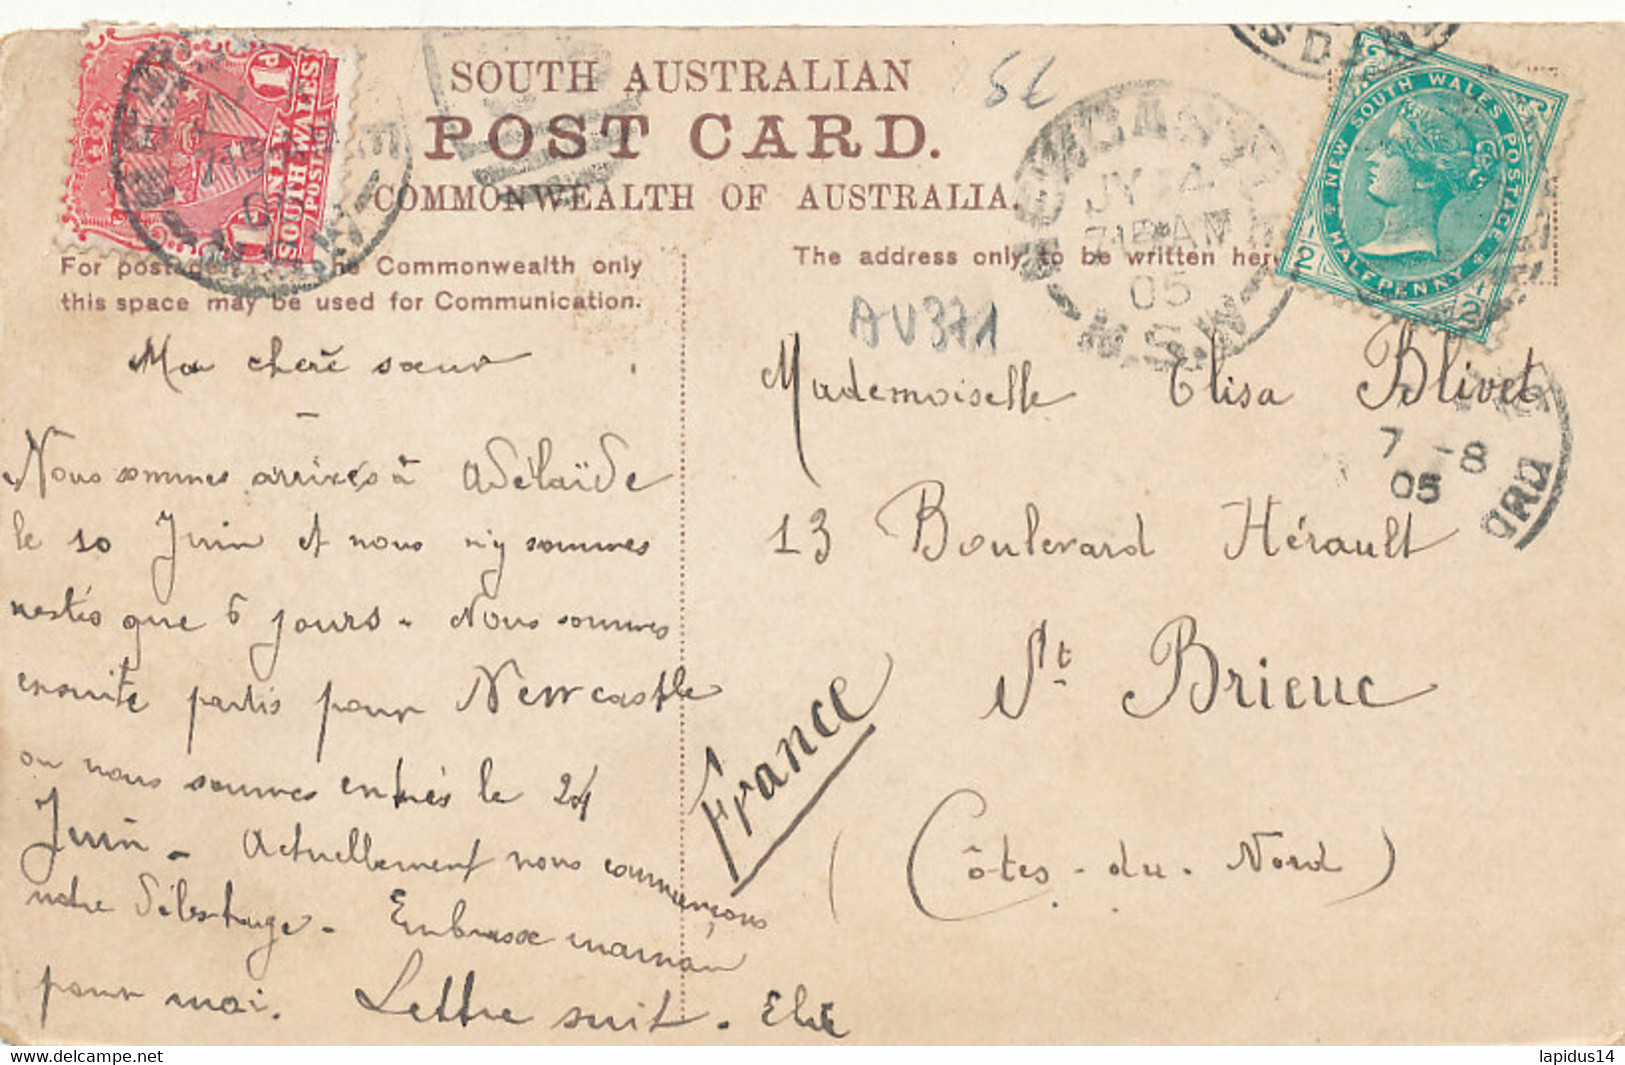 SOUTH AUSTRALIAN
POST CARD.
COMMONWEALTH OF AUSTRALIA.
For postage the Commonwealth only
this space may be used for Communication.
The address only to be written here
1 P
ONE
SOUTH WALES
POSTAGE
NEW SOUTH WALES POSTAGE
HALFPENNY
1/2
1/2
JY 4
7 15 AM
05
N.S.W
7 - 8
05
AV371
Ma chère sœur
Nous sommes arrivés à Adélaïde
le 10 Juin et nous n'y sommes
restés que 6 jours - Nous sommes
ensuite partis pour Newcastle
où nous sommes entrés le 24
Juin - Actuellement nous commençons
notre délestage - Embrasse maman
pour moi. Lettre suit - Elie
Mademoiselle Elisa Blivet
13 Boulevard Hérault
St Brieuc
(Côtes-du-Nord)
France
www.delcampe.net
lapidus14